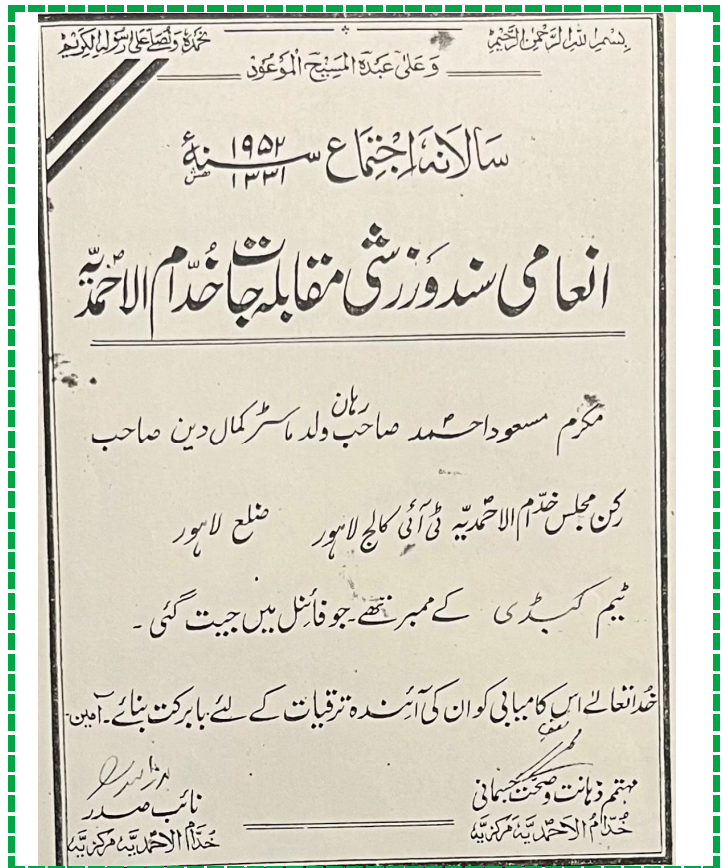 بسم اللہ الرحمن الرحیم
نحمدہ ونصلے علیٰ رسولہ الکریم
وعلیٰ عبدہ المسیح الموعود
سالانہ اجتماع سنہ ۱۹۵۲ء
۱۳۳۱ ھش
انعامی سند ورزشی مقابلہ جات خدّام الاحمدیہ
مکرم مسعود احمد صاحب ولد ماسٹر کمال دین صاحب
رکن مجلس خدّام الاحمدیہ ٹی آئی کالج لاہور ضلع لاہور
ٹیم کبڈی کے ممبر تھے۔ جو فائنل میں جیت گئی۔
خدا تعالےٰ اس کامیابی کو ان کی آئندہ ترقیات کے لئے بابرکت بنائے۔ آمین۔
مہتمم ذہانت وصحت جسمانی
خدّام الاحمدیہ مرکزیہ
نائب صدر
خدّام الاحمدیہ مرکزیہ